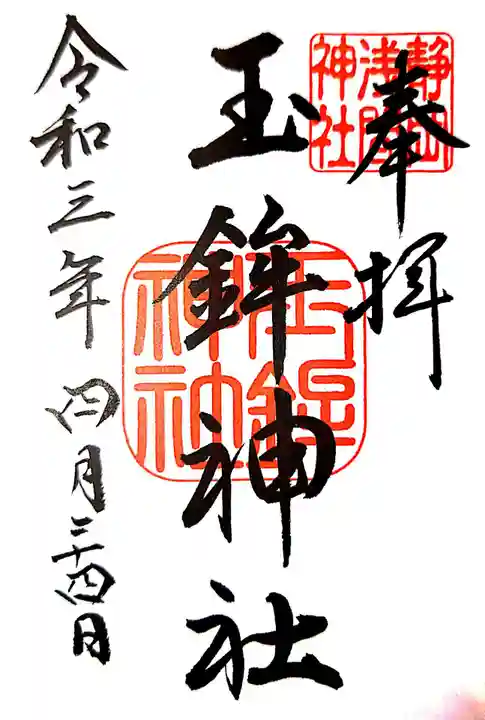 静岡
浅間
神社
奉拝
玉鉾神社
玉鉾
神社
令和三年四月二十四日